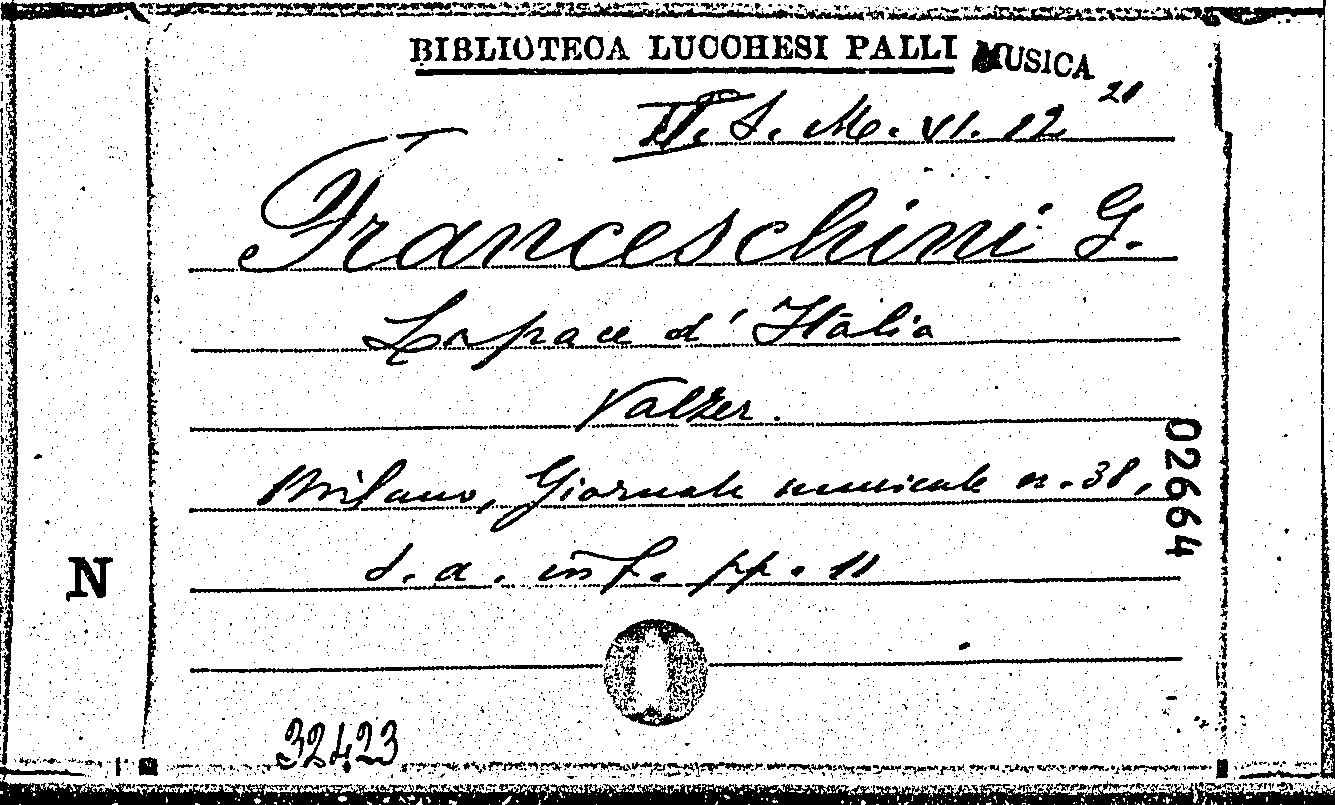 BIBLIOTECA LUCCHESI PALLI MUSICA
S. M. VI. 12 21
Franceschini G.
La pace d'Italia
Valzer.
Milano, Giornale musicale n. 38,
s. a. in f. pp. 11
02664
N
32423